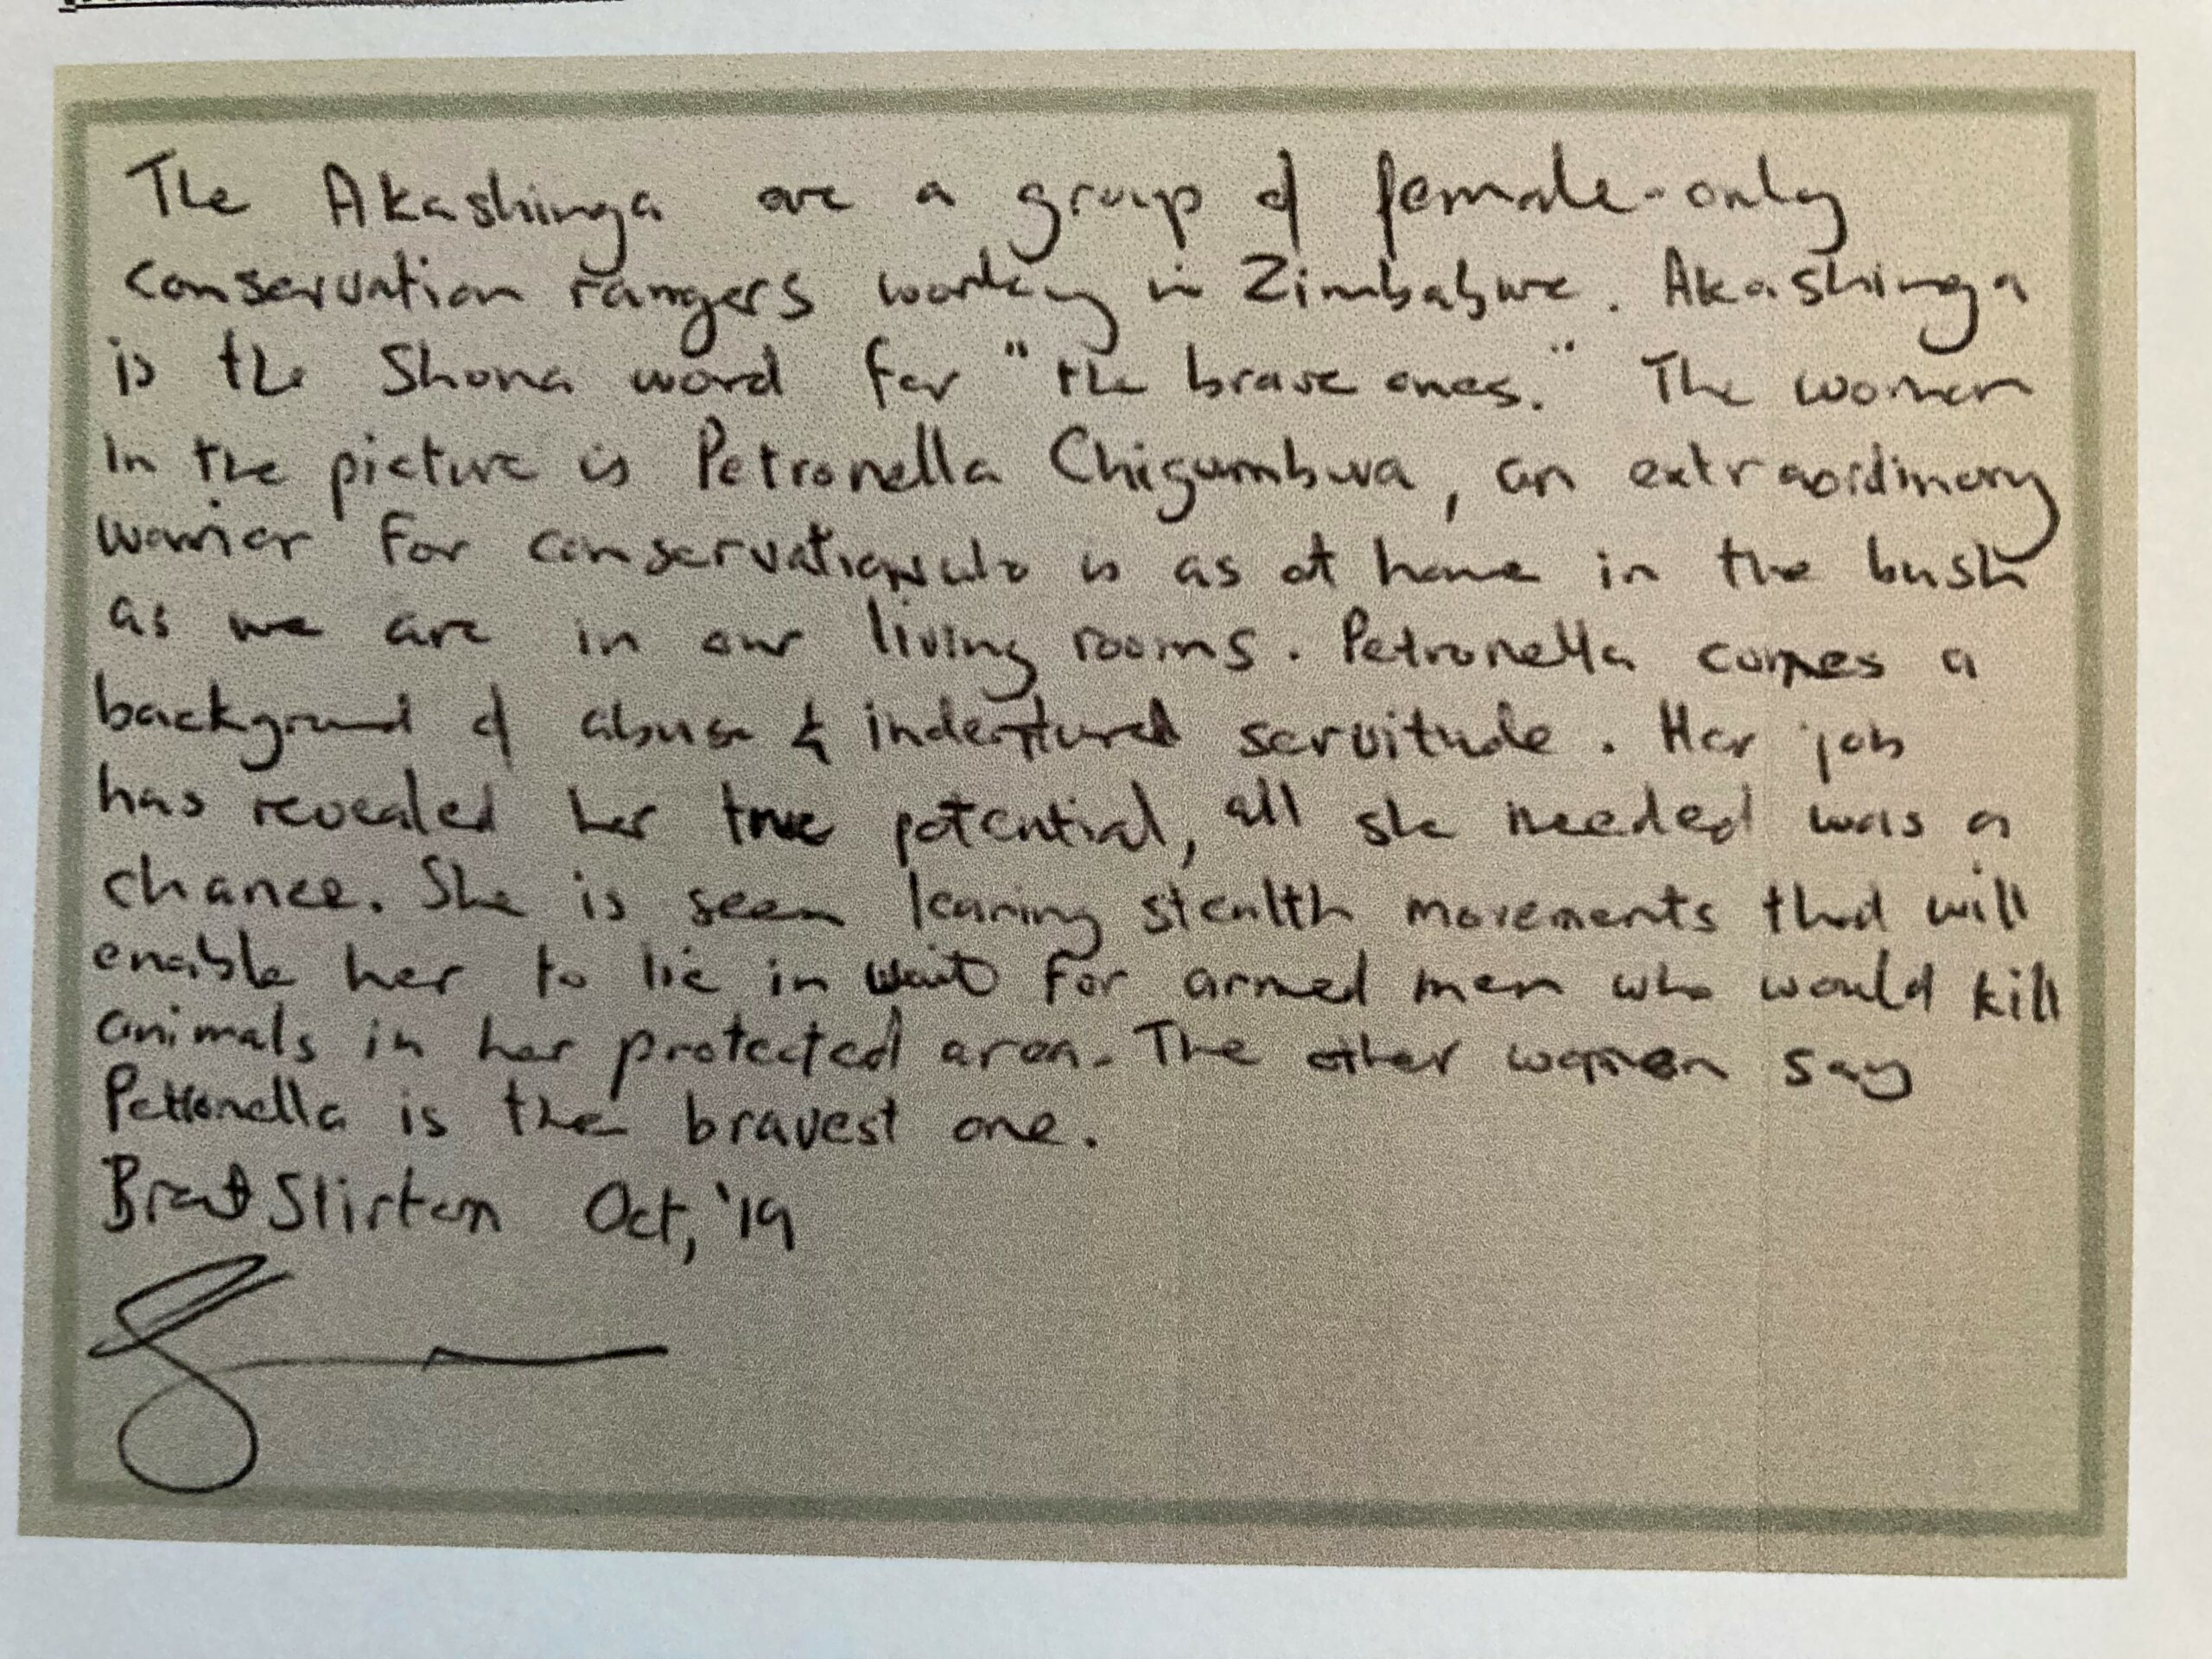 The Akashinga are a group of female-only
conservation rangers working in Zimbabwe. Akashinga
is the Shona word for "the brave ones." The women
in the picture is Petronella Chigumbura, an extraordinary
warrior for conservation who is as at home in the bush
as we are in our living rooms. Petronella comes a
background of abuse & indentured servitude. Her job
has revealed her true potential, all she needed was a
chance. She is seen learning stealth movements that will
enable her to lie in wait for armed men who would kill
animals in her protected area. The other women say
Petronella is the bravest one.
Brent Stirton Oct, '19